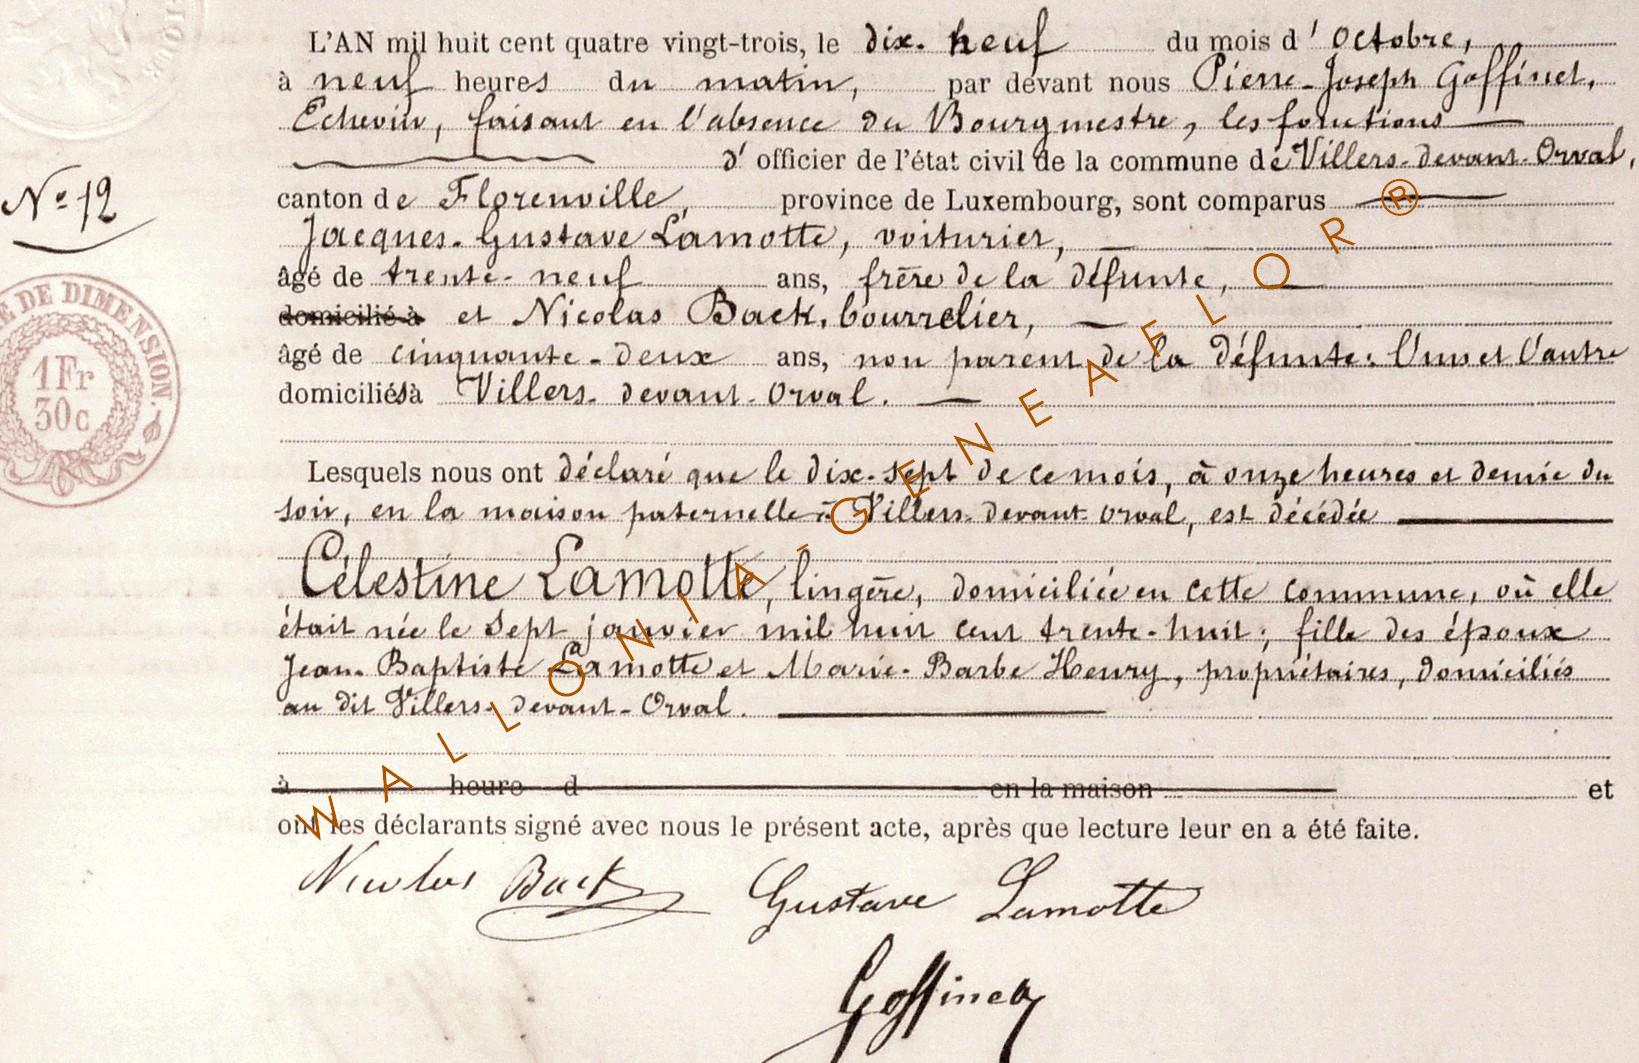 L'AN mil huit cent quatre vingt-trois, le dix-neuf du mois d'octobre,
à neuf heures du matin, par devant nous Pierre-Joseph Goffinet,
Echevin, faisant en l'absence du Bourgmestre, les fonctions
d'officier de l'état civil de la commune de Villers-devant-Orval,
N° 12
canton de Florenville, province de Luxembourg, sont comparus
Jacques-Gustave Lamotte, voiturier,
âgé de trente-neuf ans, frère de la défunte,
domicilié à et Nicolas Back, bourrelier,
âgé de cinquante-deux ans, non parent de la défunte: l'un et l'autre
domiciliés à Villers-devant-Orval.
DE DIMENSION.
1Fr
30c
Lesquels nous ont déclaré que le dix-sept de ce mois, à onze heures et demie du
soir, en la maison paternelle à Villers-devant-Orval, est décédée
Célestine Lamotte, lingère, domiciliée en cette commune, où elle
était née le sept janvier mil huit cent trente-huit; fille des époux
Jean-Baptiste Lamotte et Marie-Barbe Henry, propriétaires, domiciliés
au dit Villers-devant-Orval.
à heure d en la maison et
ont les déclarants signé avec nous le présent acte, après que lecture leur en a été faite.
Nicolas Back Gustave Lamotte
Goffinet
WALLONIA-GENEAFLOR®